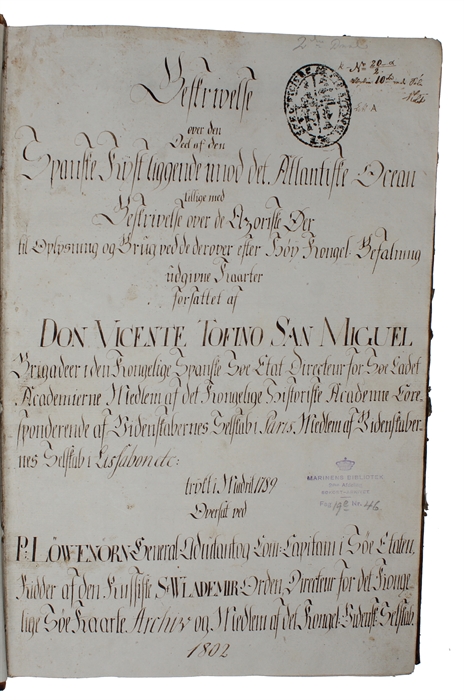 2den Deel
Beskrivelse
over den
Deel af den
Spanske Kÿst liggende imod det Atlantiske Ocean
tillige med
Beskrivelse over de Azoriske Öer
til Oplysning og Brug ved de derover efter Höy Kongel. Befalning
udgivne Kaarter
forfattet af
DON VICENTE TOFINO SAN MIGUEL
Brigadeer i den Kongelige Spanske Söe Etat Directeur for Söe Cadet
Academierne Medlem af det Kongelige Historiske Academie Corre-
sponderende af Videnskabernes Selskab i Paris Medlem af Videnskaber-
nes Selskab i Lissabon etc:
trÿkt i Madrid 1789
Oversat ved
P: LÖWENÖRN General Adjutant og Com: Capitain i Söe Etaten,
Ridder af den Russiske St WLADEMIR Orden, Directeur for det Konge-
lige Söe Kaarte Archiv og Medlem af det Kongel: Vidensk: Selskab.
1802
MARINENS BIBLIOTEK
Fag 19B Nr. 46